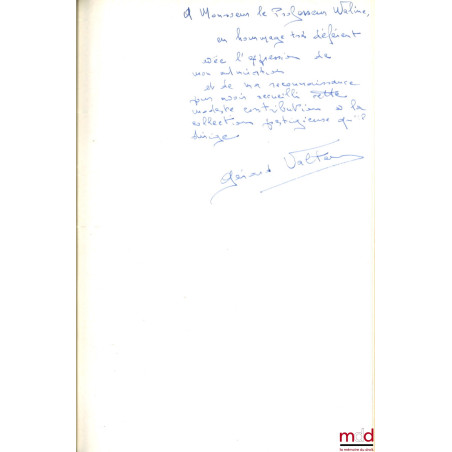 A Monsieur le Professeur Waline,
en hommage très déférent
avec l'expression de
mon admiration
et de ma reconnaissance
pour avoir recueilli cette
modeste contribution à la
collection prestigieuse qu'il
dirige
Gérard
mdd
la mémoire du droit